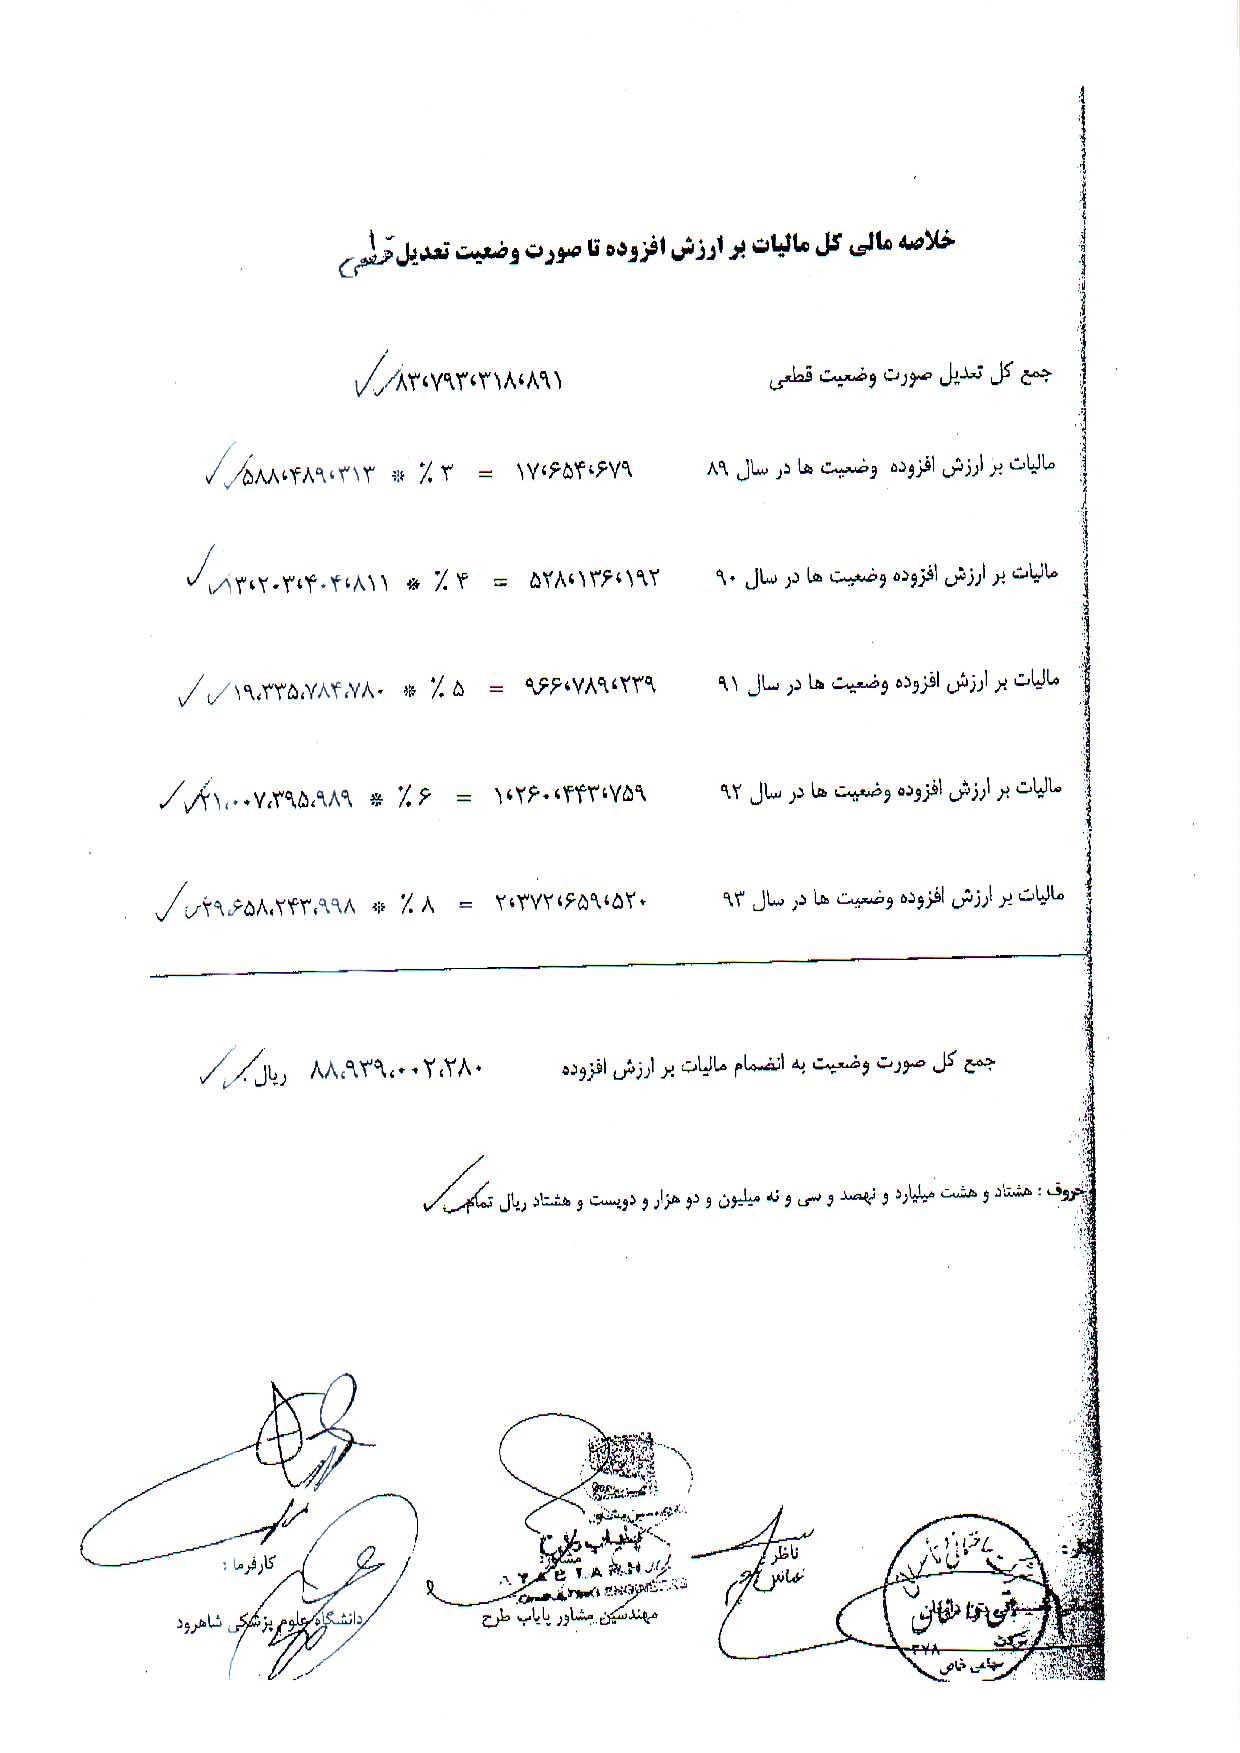 خلاصه مالی کل مالیات بر ارزش افزوده تا صورت وضعیت تعدیل قطعی
جمع کل تعدیل صورت وضعیت قطعی ۸۳،۷۹۳،۳۱۸،۸۹۱
مالیات بر ارزش افزوده وضعیت ها در سال ۸۹ ۱۷،۶۵۴،۶۷۹ = ۳ ٪ * ۵۸۸،۴۸۹،۳۱۳
مالیات بر ارزش افزوده وضعیت ها در سال ۹۰ ۵۲۸،۱۳۶،۱۹۲ = ۴ ٪ * ۱۳،۲۰۳،۴۰۴،۸۱۱
مالیات بر ارزش افزوده وضعیت ها در سال ۹۱ ۹۶۶،۷۸۹،۲۳۹ = ۵ ٪ * ۱۹،۳۳۵،۷۸۴،۷۸۰
مالیات بر ارزش افزوده وضعیت ها در سال ۹۲ ۱،۲۶۰،۴۴۳،۷۵۹ = ۶ ٪ * ۲۱،۰۰۷،۳۹۵،۹۸۹
مالیات بر ارزش افزوده وضعیت ها در سال ۹۳ ۲،۳۷۲،۶۵۹،۵۲۰ = ۸ ٪ * ۲۹،۶۵۸،۲۴۳،۹۹۸
جمع کل صورت وضعیت به انضمام مالیات بر ارزش افزوده ۸۸،۹۳۹،۰۰۲،۲۸۰ ریال
حروف : هشتاد و هشت میلیارد و نهصد و سی و نه میلیون و دو هزار و دویست و هشتاد ریال تمام
ناظر :
مشاور:
کارفرما :
مهندسین مشاور پایاب طرح
دانشگاه علوم پزشکی شاهرود
شرکت
۲۷۸